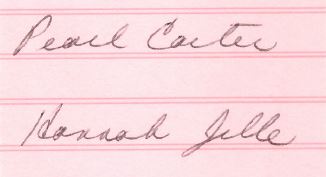 Pearl Carter
Hannah Jelle